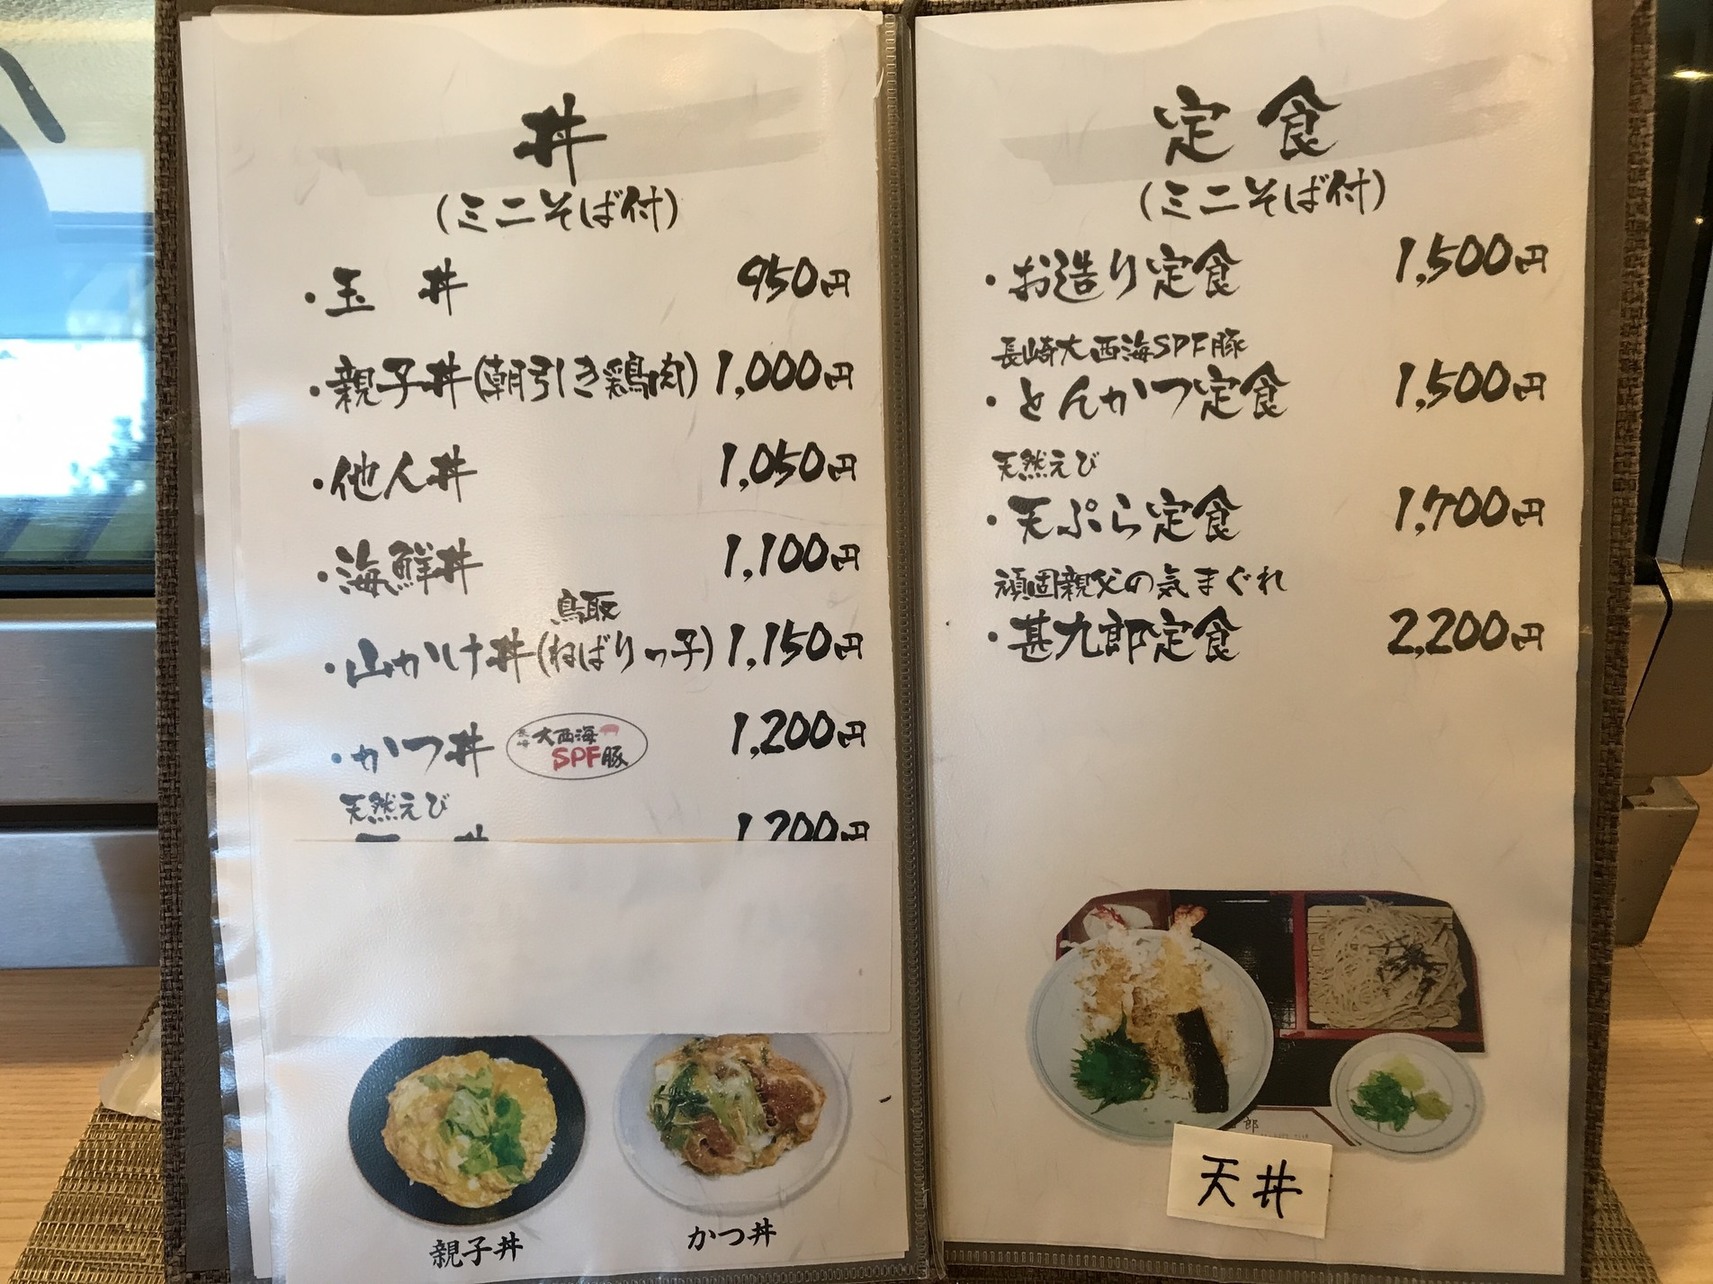 丼
(ミニそば付)
・玉 丼 950円
・親子丼(朝引き鶏肉) 1,000円
・他人丼 1,050円
・海鮮丼 1,100円
鳥取
・山かけ丼(ねばりっ子) 1,150円
・かつ丼 1,200円
長崎 大西海
SPF豚
天然えび
1,200円
親子丼
かつ丼
定食
(ミニそば付)
・お造り定食 1,500円
長崎大西海SPF豚
・とんかつ定食 1,500円
天然えび
・天ぷら定食 1,700円
頑固親父の気まぐれ
・甚九郎定食 2,200円
郎
天丼